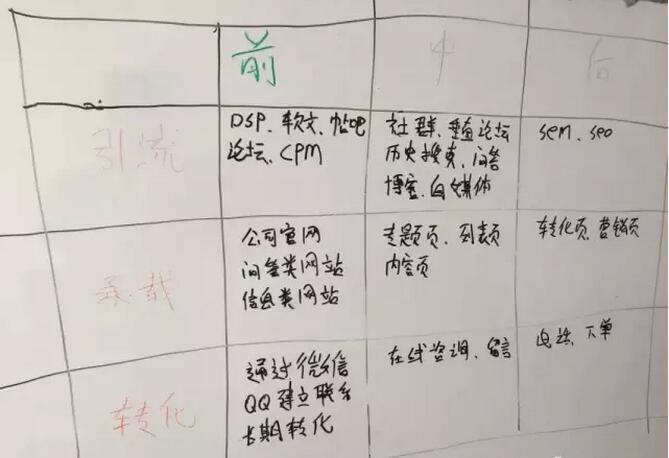 前 中 后
引流
DSP、软文、帖吧
论坛、CPM
社群、垂直论坛
历史搜索、问答
博客、自媒体
sem、seo
承载
公司官网
问答类网站
信息类网站
专题页、列表页
内容页
转化页、营销页
转化
通过微信
QQ建立联系
长期转化
在线咨询、留言
电话、下单